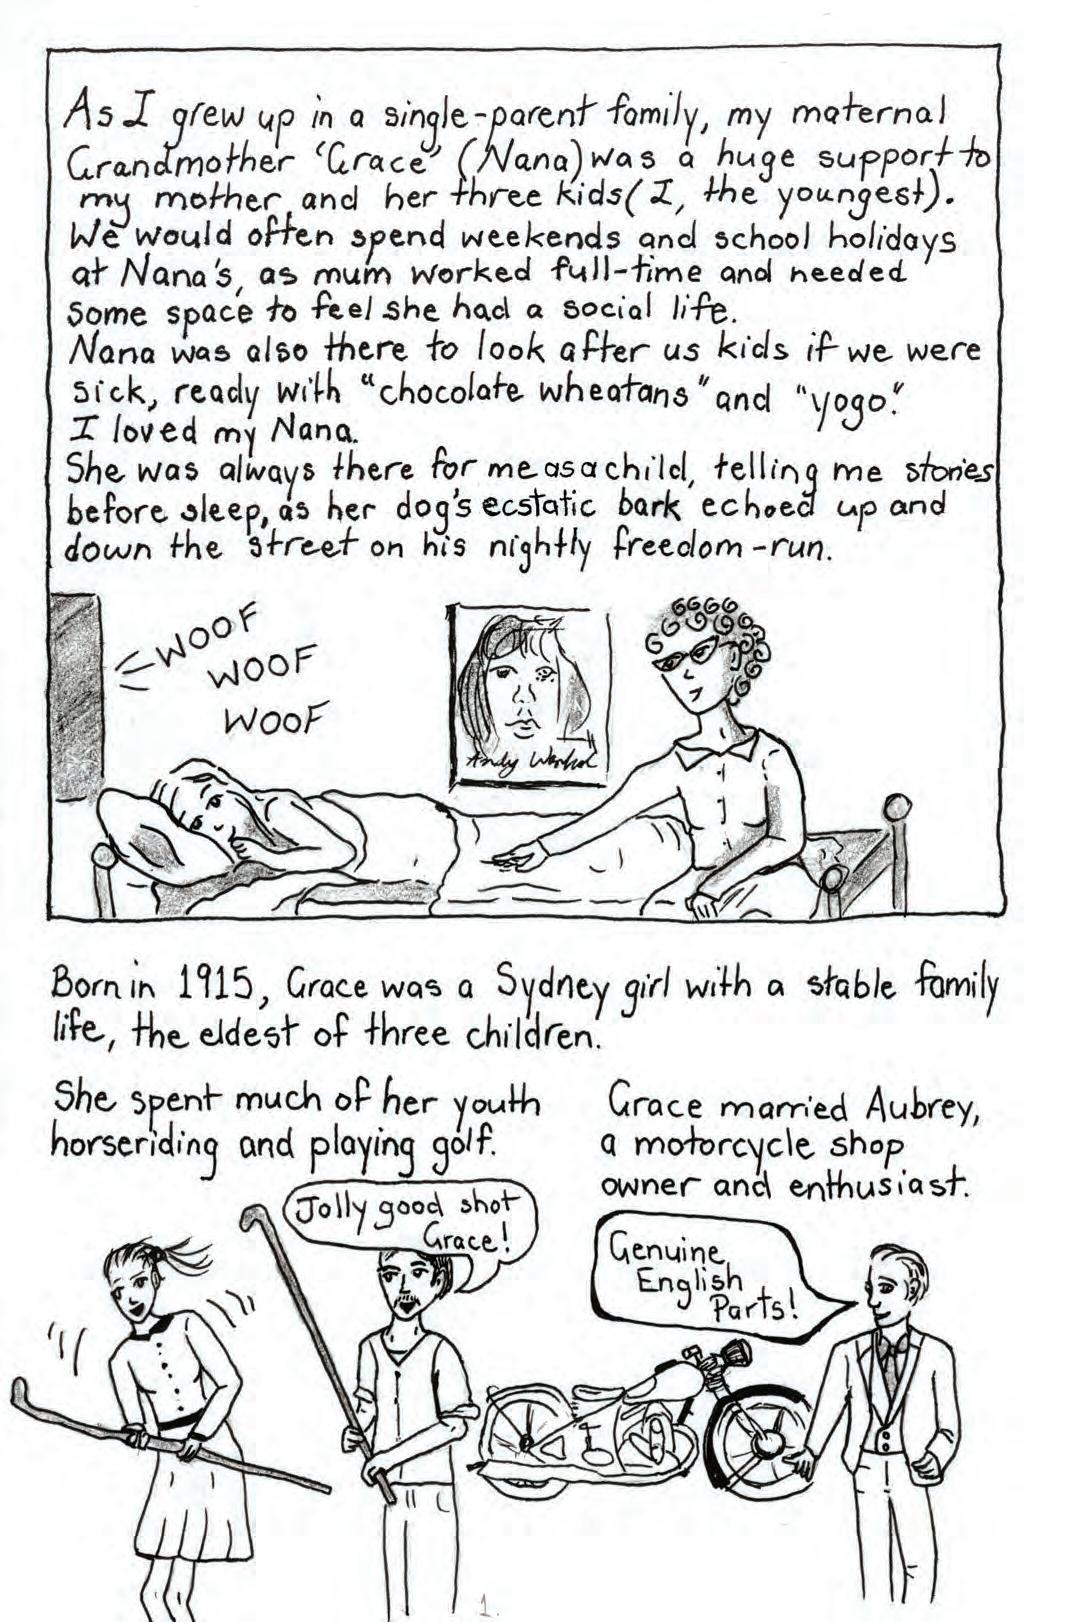 As I grew up in a single-parent family, my maternal
Grandmother 'Grace' (Nana) was a huge support to
my mother and her three kids (I, the youngest).
We would often spend weekends and school holidays
at Nana's, as mum worked full-time and needed
some space to feel she had a social life.
Nana was also there to look after us kids if we were
sick, ready with "chocolate wheatans" and "yogo."
I loved my Nana.
She was always there for me as a child, telling me stories
before sleep, as her dog's ecstatic bark echoed up and
down the street on his nightly freedom-run.
WOOF
WOOF
WOOF
Andy Warhol
Born in 1915, Grace was a Sydney girl with a stable family
life, the eldest of three children.
She spent much of her youth
horseriding and playing golf.
Jolly good shot
Grace!
Grace married Aubrey,
a motorcycle shop
owner and enthusiast.
Genuine
English
Parts!
1.